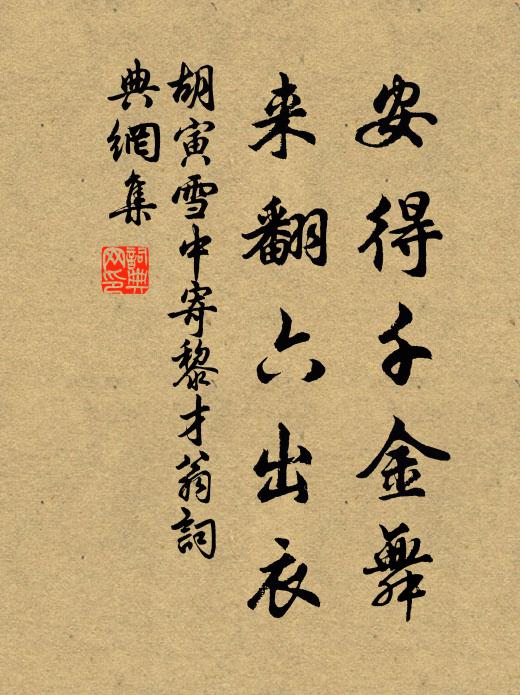 安得千金舞
来翻六出衣
胡寅雪中寄黎才翁詞
典網集
詞典
网印